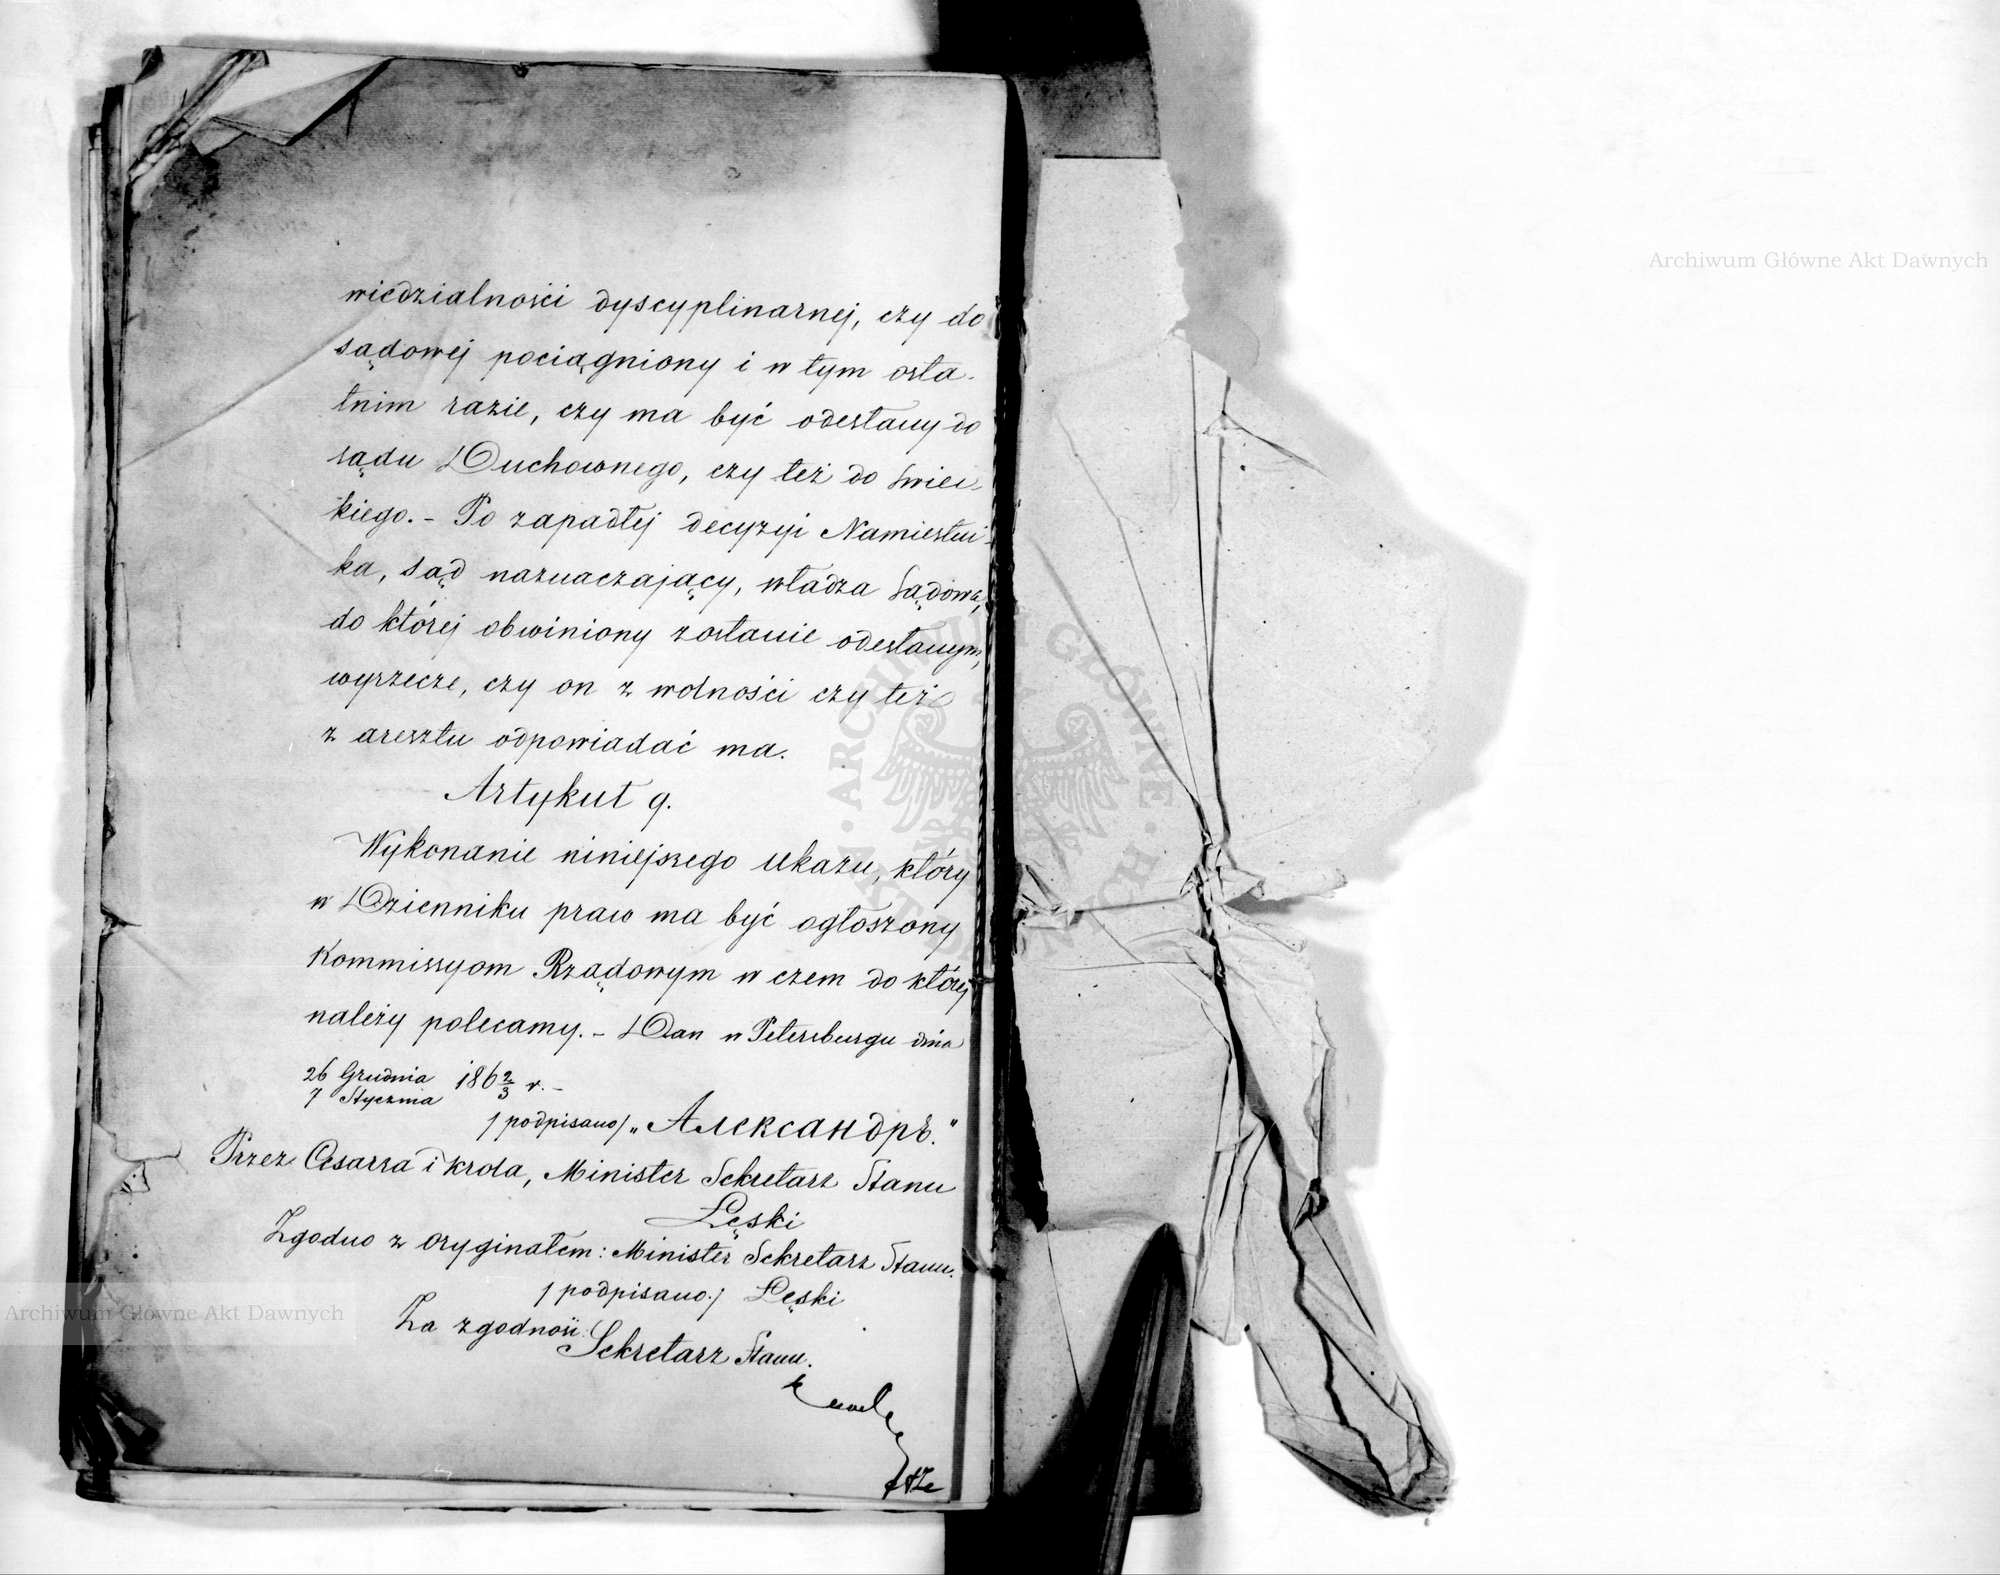 wiedzialności dyscyplinarnej, czy do
sądowej pociągniony i w tym osta-
tnim razie, czy ma być odesłany do
sądu Duchownego, czy też do świec-
kiego. - Po zapadłej decyzyi Namiestni-
ka, sąd naznaczającey, władza sądowa,
do której obwiniony zostanie odesłanym,
wyrzecze, czy on z wolności czy też
z aresztu odpowiadać ma.
Artykuł 9.
Wykonanie niniejszego ukazu, który
w Dzienniku praw ma być ogłoszony
Kommissyom Rządowym w czem do której
należy polecamy. - Dan w Petersburgu dnia
26 Grudnia
7 Stycznia 186 2/3 r. -
/podpisano/ „Александръ."
Przez Cesarza i Króla, Minister Sekretarz Stanu
Łęski
Zgodno z oryginałem: Minister Sekretarz Stanu.
/podpisano./ Łęski
Za zgodność:
Sekretarz Stanu.
Archiwum Główne Akt Dawnych
Archiwum Główne Akt Dawnych
ARCHIWUM GŁÓWNE AKT DAWNYCH